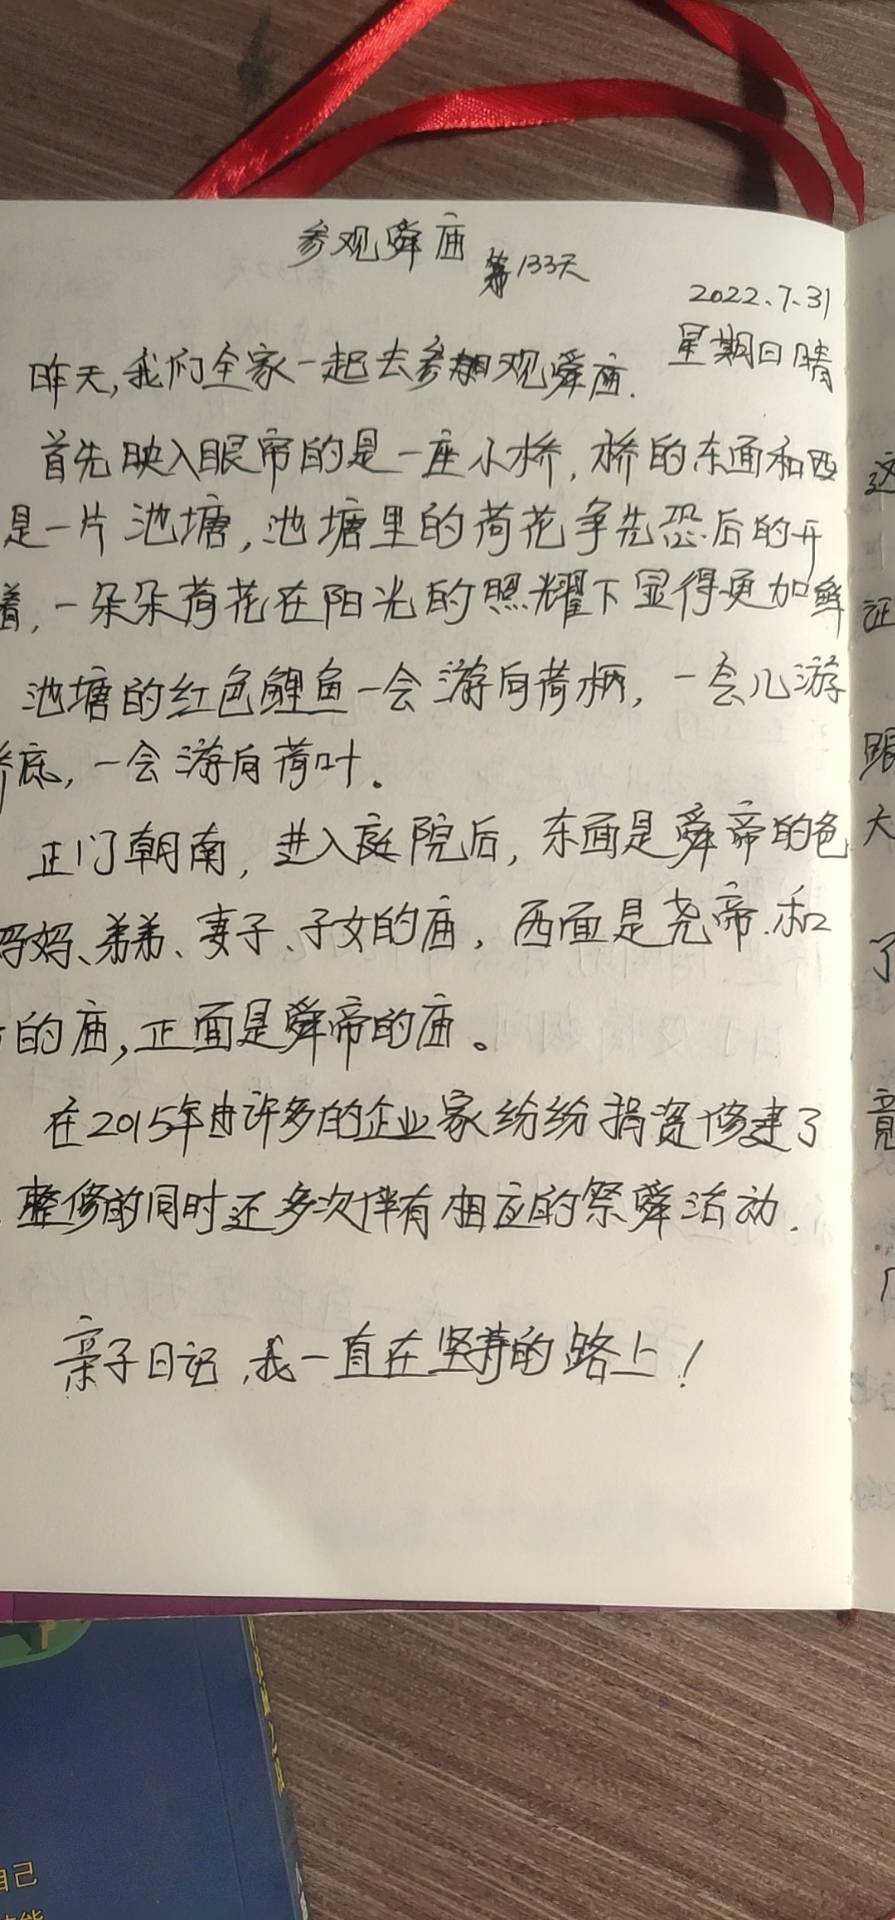 参观舜庙 第133天
2022.7.31
星期日晴
昨天,我们全家一起去参观舜庙.
首先映入眼帘的是一座小桥,桥的东面和西
是一片池塘,池塘里的荷花争先恐后的开
着,一朵朵荷花在阳光的照耀下显得更加鲜
池塘的红色鲤鱼一会游向荷柄,一会儿游
底,一会游向荷叶。
正门朝南,进入庭院后,东面是舜帝的爸
妈妈、弟弟、妻子、子女的庙,西面是尧帝.和
的庙,正面是舜帝的庙。
在2015年由许多的企业家纷纷捐资修建了
整修的同时还多次伴有相应的祭舜活动.
亲子日记,我一直在坚持的路上!
这
证
眼
大
了
竟
自己